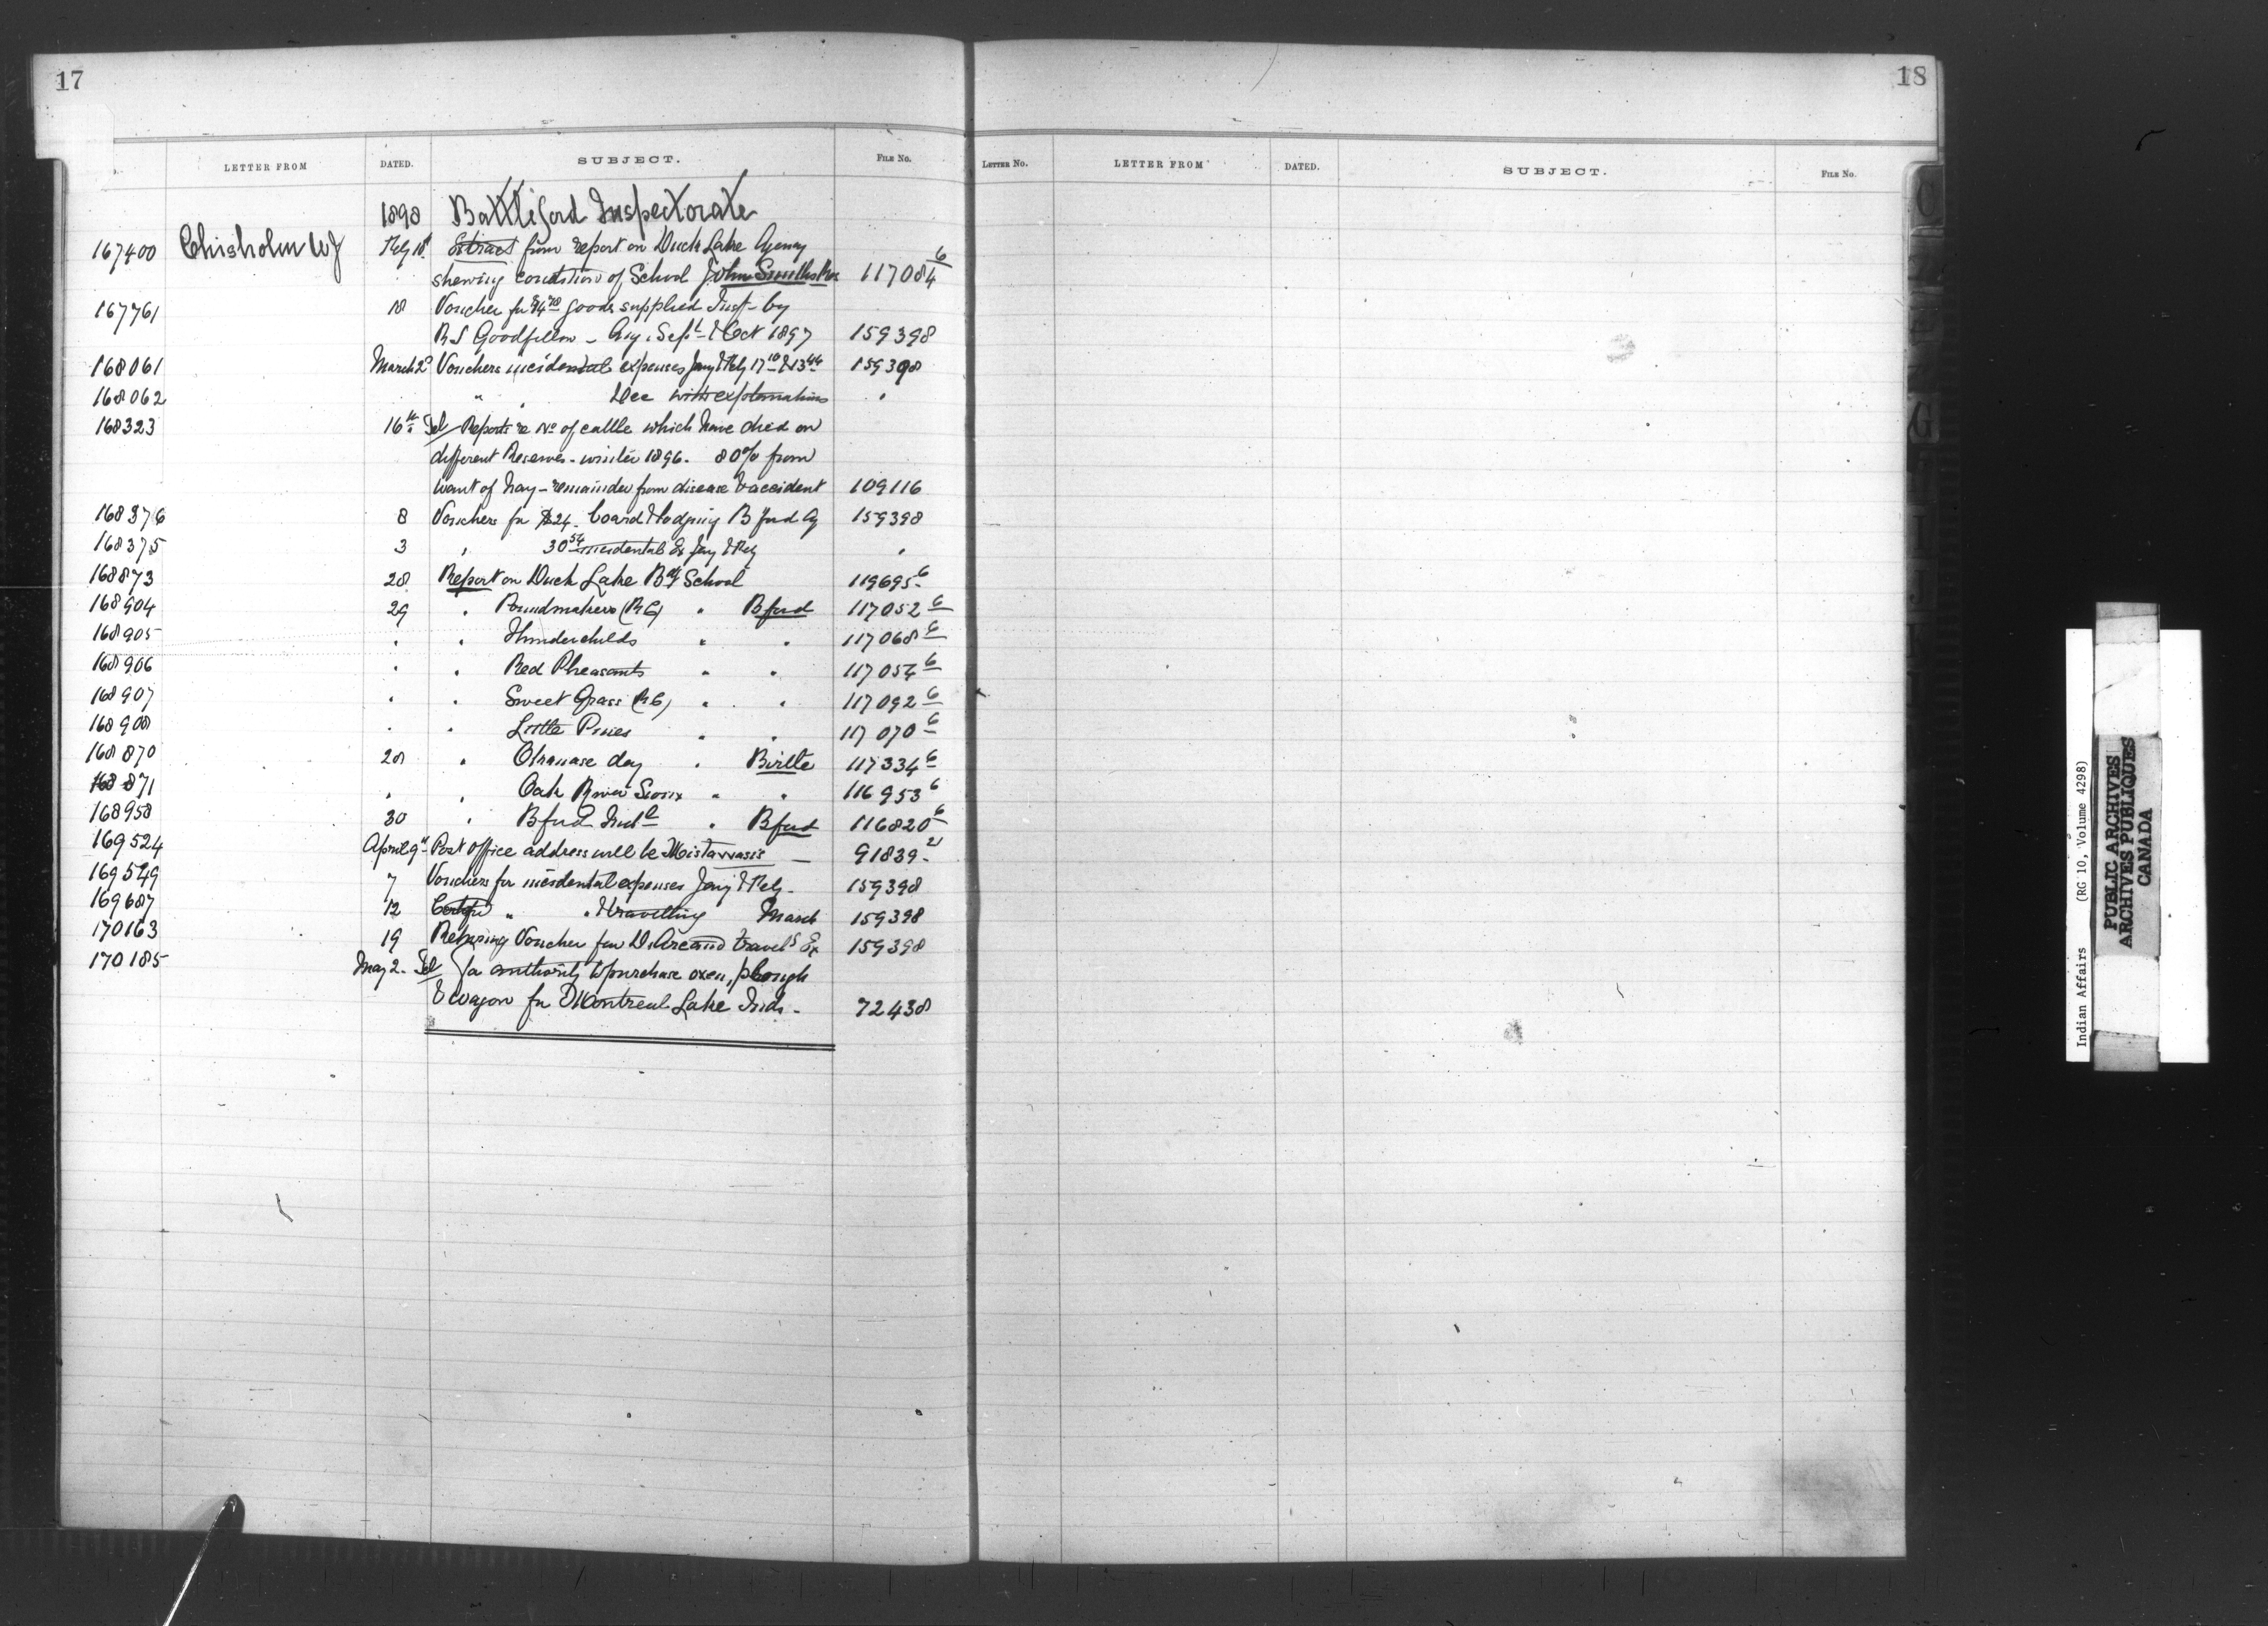 17
LETTER FROM DATED. SUBJECT. FILE No.
1898 Battleford Inspectorate
167400 Chisholm WJ Feby 18 Extract from report on Duck Lake Agency
shewing condition of School John Smiths Res 117084 6
167761 18 Voucher for goods supplied Insp by
R S Goodfellow - Aug, Sept & Oct 1897 159398
168061 March 2 Vouchers incidental expenses Jany & Feby 17 10 & 13 44 159398
168062 " " Dec with explanations "
168323 16th Tel Reports re No of cattle which have died on
different Reserves - winter 1896. 80% from
want of hay - remainder from disease & accident 109116
168376 8 Vouchers for $24. board & lodging B'ford Ag 159398
168375 3 " 30 54 incidental Ex Jany & Feby "
168873 28 Report on Duck Lake Bdg School 119695-6
168904 29 " Poundmakers (RC) " Bford 117052 6
168905 " " Thunderchilds " " 117068 6
168906 " " Red Pheasants " " 117054 6
168907 " " Sweet Grass (RC) " " 117092 6
168908 " " Little Pines " " 117070 6
168870 28 " Okanase day " Birtle 117334 6
168871 " " Oak River Sioux " " 116953 6
168958 30 " Bford Indl " Bford 116820 6
169524 April 9th Post office address will be Mistawasis — 91839-21
169549 7 Vouchers for incidental expenses Jany & Feby - 159398
169687 12 " " & travelling March 159398
170163 19 Returning Voucher for D. Arcand travels Ex 159398
170185 May 2. Tel for authority to purchase oxen, plough
& wagon for Montreal Lake Inds - 72438
18
LETTER No. LETTER FROM DATED. SUBJECT. FILE No.
C
G
I
J
Indian Affairs (RG 10, Volume 4298)
PUBLIC ARCHIVES
ARCHIVES PUBLIQUES
CANADA